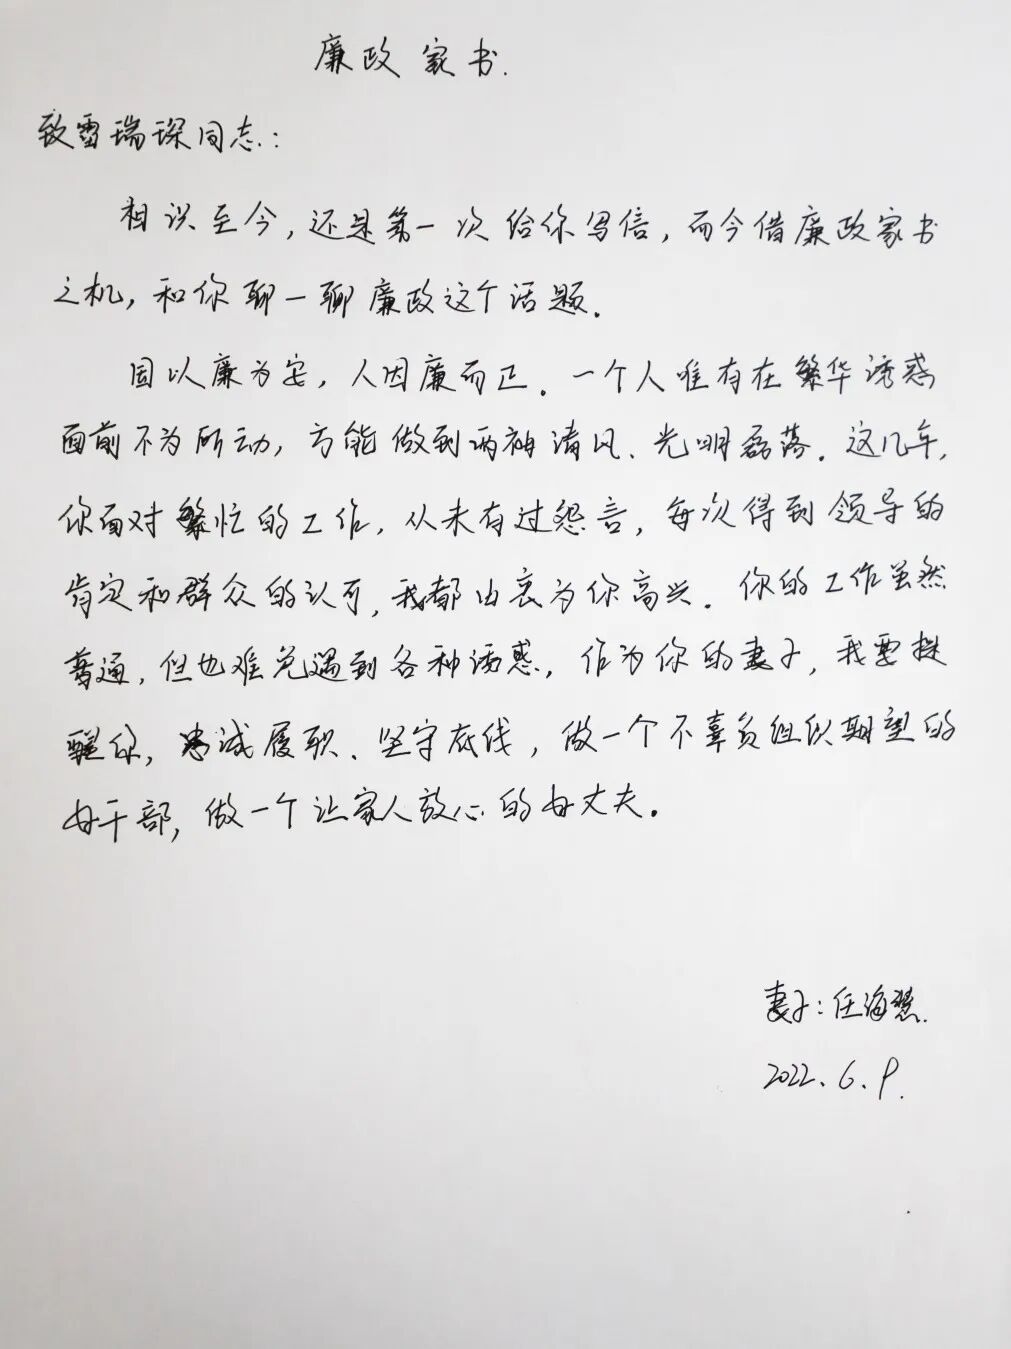 廉政家书.
致雷瑞琛同志:
相识至今,还是第一次给你写信,而今借廉政家书
之机,和你聊一聊廉政这个话题.
国以廉为安,人因廉而正.一个人唯有在繁华诱惑
面前不为所动,方能做到两袖清风、光明磊落.这几年,
你面对繁忙的工作,从未有过怨言,每次得到领导的
肯定和群众的认可,我都由衷为你高兴.你的工作虽然
普通,但也难免遇到各种诱惑,作为你的妻子,我要提
醒你,忠诚履职、坚守底线,做一个不辜负组织期望的
好干部,做一个让家人放心的好丈夫。
妻子:任海慧.
2022.6.9.